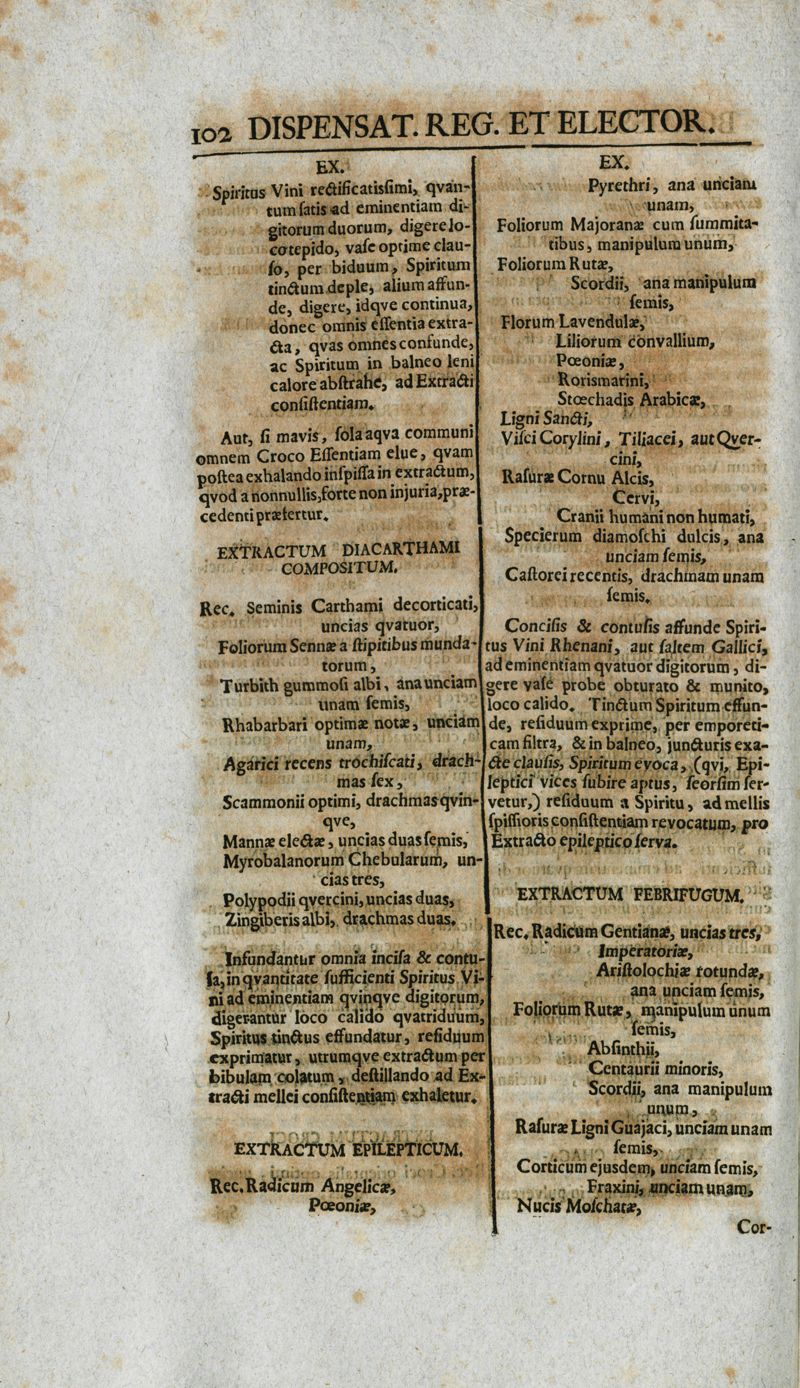 102 DISPENSAT. REG. ET ELECTOR.
EX.
Spiritus Vini rectificatisſimi, qvan-
tum ſatis ad eminentiam di-
gitorum duorum, digere lo-
co tepido, vaſe optime clau-
ſo, per biduum, Spiritum
tinctum deple, alium affun-
de, digere, idqve continua,
donec omnis eſſentia extra-
cta, qvas omnes confunde,
ac Spiritum in balneo leni
calore abſtrahe, ad Extracti
conſiſtentiam.
Aut, ſi mavis, ſola aqva communi
omnem Croco Eſſentiam elue, qvam
poſtea exhalando inſpiſſa in extractum,
qvod a nonnullis, forte non injuria, præ-
cedenti præfertur.
EXTRACTUM DIACARTHAMI
COMPOSITUM.
Rec. Seminis Carthami decorticati,
uncias qvatuor,
Foliorum Sennæ a ſtipitibus munda-
torum,
Turbith gummoſi albi, ana unciam
unam ſemis,
Rhabarbari optimæ notæ, unciam
unam,
Agarici recens trochiſcati, drach-
mas ſex,
Scammonii optimi, drachmas qvin-
qve,
Mannæ electæ, uncias duas ſemis,
Myrobalanorum Chebularum, un-
cias tres,
Polypodii qvercini, uncias duas,
Zingiberis albi, drachmas duas.
Infundantur omnia inciſa & contu-
ſa, in qvantitate ſufficienti Spiritus Vi-
ni ad eminentiam qvinqve digitorum,
digerantur loco calido qvatriduum,
Spiritus tinctus effundatur, reſiduum
exprimatur, utrumqve extractum per
bibulam colatum, deſtillando ad Ex-
tracti mellei conſiſtentiam exhaletur.
EXTRACTUM EPILEPTICUM.
Rec. Radicum Angelicæ,
Pœoniæ,
EX.
Pyrethri, ana unciam
unam,
Foliorum Majoranæ cum ſummita-
tibus, manipulum unum,
Foliorum Rutæ,
Scordii, ana manipulum
ſemis,
Florum Lavendulæ,
Liliorum convallium,
Pœoniæ,
Rorismarini,
Stœchadis Arabicæ,
Ligni Sancti,
Viſci Corylini, Tiliacei, aut Qver-
cini,
Raſuræ Cornu Alcis,
Cervi,
Cranii humani non humati,
Specierum diamoſchi dulcis, ana
unciam ſemis,
Caſtorei recentis, drachmam unam
ſemis.
Conciſis & contuſis affunde Spiri-
tus Vini Rhenani, aut ſaltem Gallici,
ad eminentiam qvatuor digitorum, di-
gere vaſe probe obturato & munito,
loco calido. Tinctum Spiritum effun-
de, reſiduum exprime, per emporeti-
cam filtra, & in balneo, juncturis exa-
cte clauſis, Spiritum evoca, (qvi, Epi-
leptici vices ſubire aptus, ſeorſim ſer-
vetur,) reſiduum a Spiritu, ad mellis
ſpiſſioris conſiſtentiam revocatum, pro
Extracto epileptico ſerva.
EXTRACTUM FEBRIFUGUM.
Rec. Radicum Gentianæ, uncias tres,
Imperatoriæ,
Ariſtolochiæ rotundæ,
ana unciam ſemis,
Foliorum Rutæ, manipulum unum
ſemis,
Abſinthii,
Centaurii minoris,
Scordii, ana manipulum
unum,
Raſuræ Ligni Guajaci, unciam unam
ſemis,
Corticum ejusdem, unciam ſemis,
Fraxini, unciam unam,
Nucis Moſchatæ,
Cor-